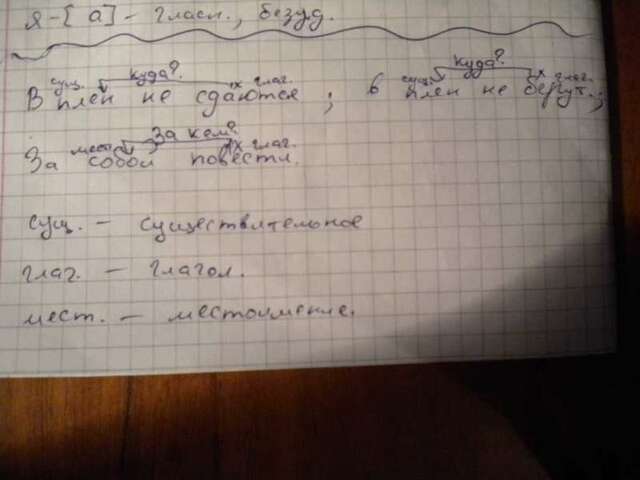 я - [ а ] - гласн., безуд.
сущ. куда? х глаг. сущ. куда? х глаг.
В плен не сдаются ; в плен не берут. ;
мест. За кем? х глаг.
За собой повести.
сущ. - существительное
глаг. - глагол.
мест. - местоимение.